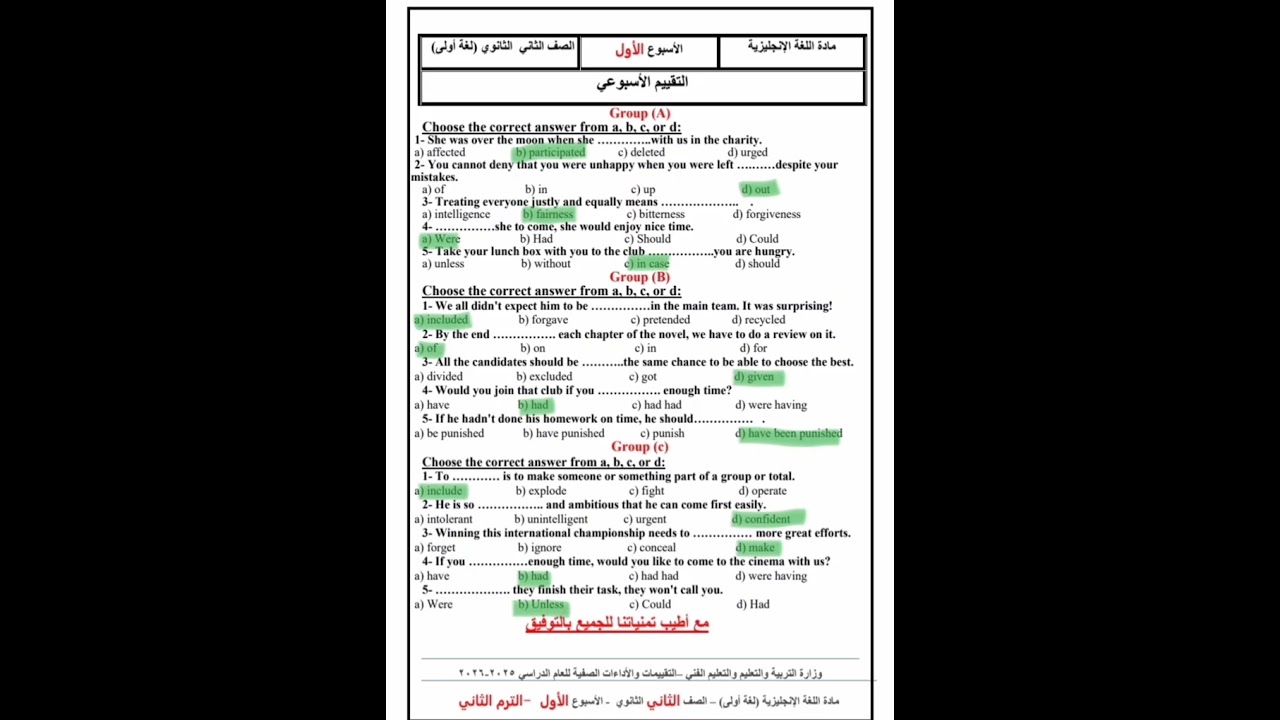 مادة اللغة الإنجليزية
الأسبوع الأول
الصف الثاني الثانوي (لغة أولى)
التقييم الأسبوعي
Group (A)
Choose the correct answer from a, b, c, or d:
1- She was over the moon when she …………..with us in the charity.
a) affected b) participated c) deleted d) urged
2- You cannot deny that you were unhappy when you were left ….……despite your
mistakes.
a) of b) in c) up d) out
3- Treating everyone justly and equally means ……………….. .
a) intelligence b) fairness c) bitterness d) forgiveness
4- ……………she to come, she would enjoy nice time.
a) Were b) Had c) Should d) Could
5- Take your lunch box with you to the club ……………..you are hungry.
a) unless b) without c) in case d) should
Group (B)
Choose the correct answer from a, b, c, or d:
1- We all didn't expect him to be ……………in the main team. It was surprising!
a) included b) forgave c) pretended d) recycled
2- By the end ……………. each chapter of the novel, we have to do a review on it.
a) of b) on c) in d) for
3- All the candidates should be ………..the same chance to be able to choose the best.
a) divided b) excluded c) got d) given
4- Would you join that club if you ……………. enough time?
a) have b) had c) had had d) were having
5- If he hadn't done his homework on time, he should…………… .
a) be punished b) have punished c) punish d) have been punished
Group (c)
Choose the correct answer from a, b, c, or d:
1- To ………… is to make someone or something part of a group or total.
a) include b) explode c) fight d) operate
2- He is so …………….. and ambitious that he can come first easily.
a) intolerant b) unintelligent c) urgent d) confident
3- Winning this international championship needs to …………… more great efforts.
a) forget b) ignore c) conceal d) make
4- If you ……………enough time, would you like to come to the cinema with us?
a) have b) had c) had had d) were having
5- ………………. they finish their task, they won't call you.
a) Were b) Unless c) Could d) Had
مع أطيب تمنياتنا للجميع بالتوفيق
وزارة التربية والتعليم والتعليم الفني –التقييمات والأداءات الصفية للعام الدراسي ٢٠٢٥-٢٠٢٦
مادة اللغة الإنجليزية (لغة أولى) – الصف الثاني الثانوي - الأسبوع الأول –الترم الثاني